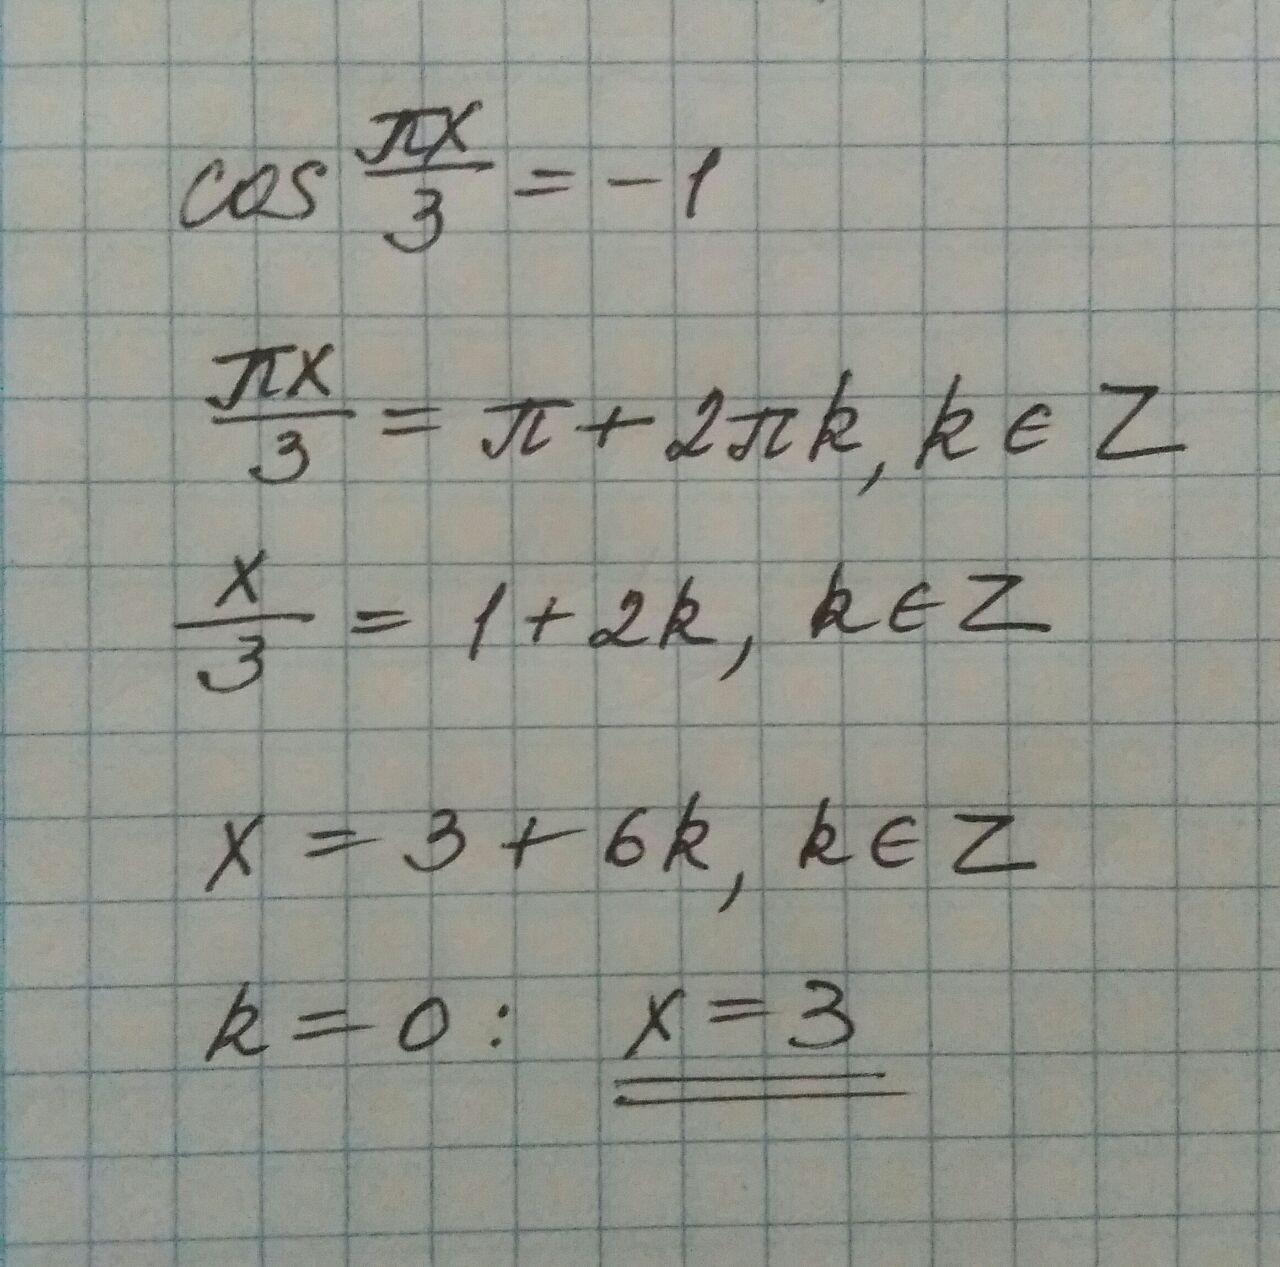 cos πx/3 = -1
πx/3 = π + 2πk, k ∈ Z
x/3 = 1 + 2k, k ∈ Z
x = 3 + 6k, k ∈ Z
k = 0: x = 3